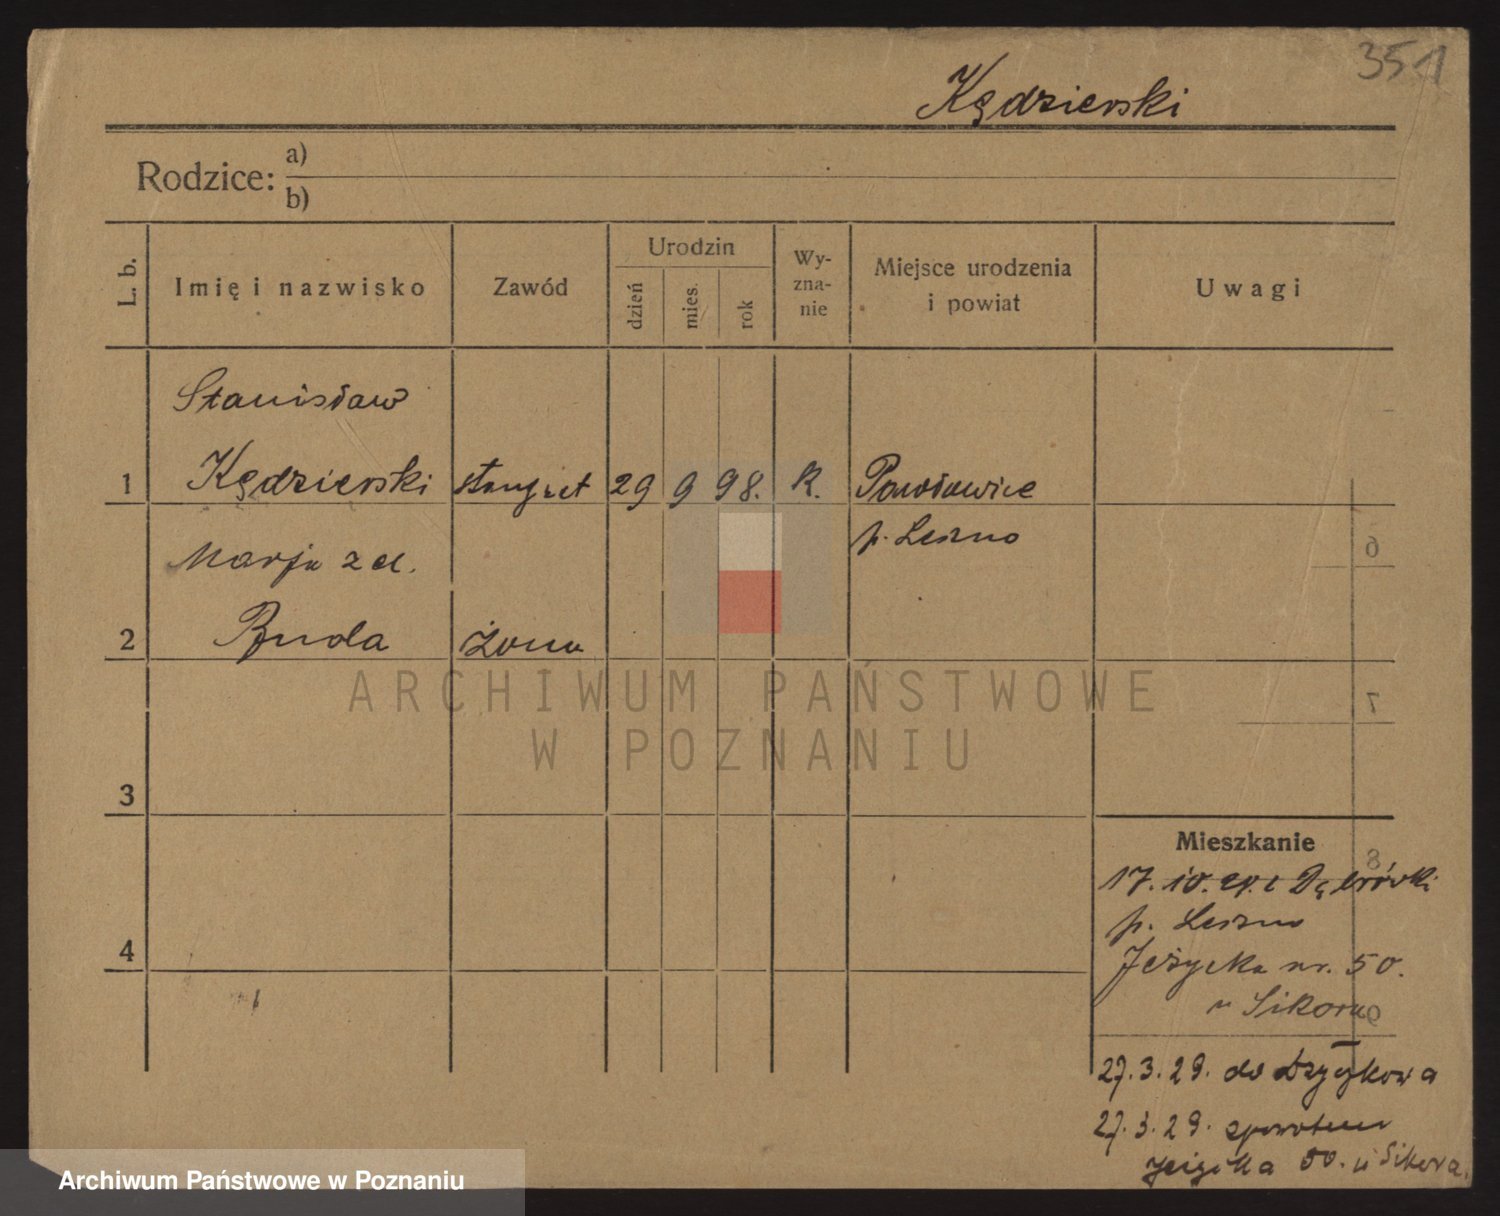 351
Kędzierski
Rodzice: a)
b)
L. b.
Imię i nazwisko
Zawód
Urodzin
dzień
mies.
rok
Wy-
zna-
nie
Miejsce urodzenia
i powiat
Uwagi
Stanisław
1 Kędzierski stangret 29 9 98. K. Pawłowice
p. Leszno
Marja z d.
2 Buda żona
3
4
Mieszkanie
17. 10. z Dąbrówki
p. Leszno
Jeżycka nr. 50.
u Sikora
27. 3. 29. do
27. 3. 29. spowotem
Jeżycka 50. u Sikora.
6
7
8
9
ARCHIWUM PAŃSTWOWE
W POZNANIU
Archiwum Państwowe w Poznaniu